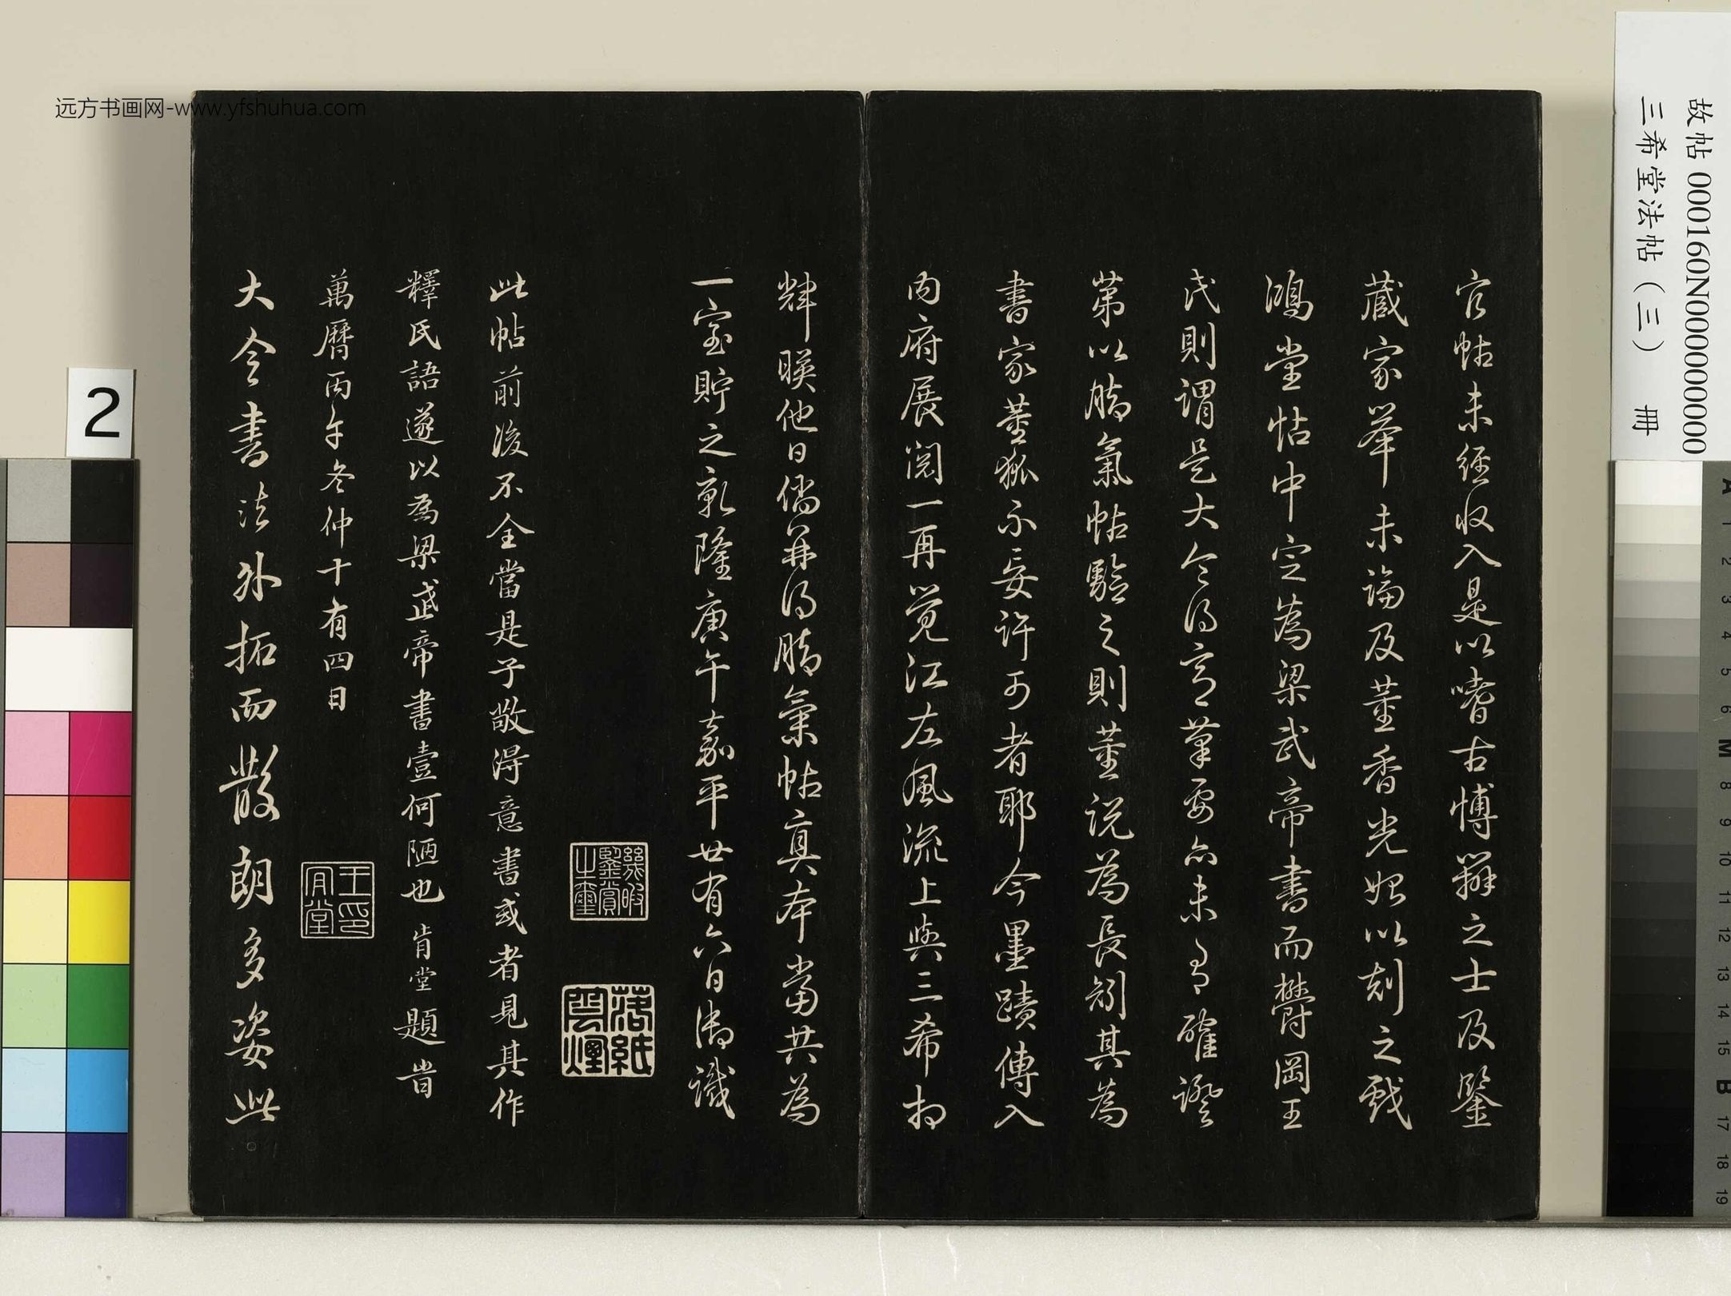 官帖未經收入是以嗜古博辯之士及鑒
藏家舉未論及董香光始以刻之戲
鴻堂帖中定為梁武帝書而鬱岡王
氏則謂是大令得意筆要亦未有確證
第以鴨頭氣帖驗之則董說為長
書家董狐不妄許可者耶今墨蹟傳入
內府展閱一再覺江左風流上與三希相
輝映他日倘并得帖真本當共為
一室貯之乾隆庚午嘉平廿有六日御識
幾暇鑒賞之璽
落紙雲煙
此帖前後不全當是子敬得意書或者見其作
釋氏語遂以為梁武帝書壹何陋也肯堂題旹
萬曆丙午冬仲十有四日
王肯堂印
大令書法外拓而散朗多姿此
故帖 000160N000000000
三希堂法帖（三） 冊
2
远方书画网-www.yfshuhua.com